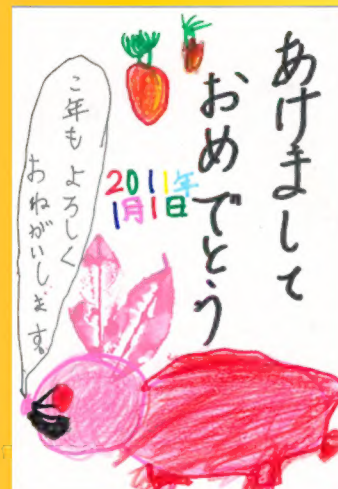 あけまして
おめでとう
2011年
1月1日
こ年も よろしく
おねがいします。